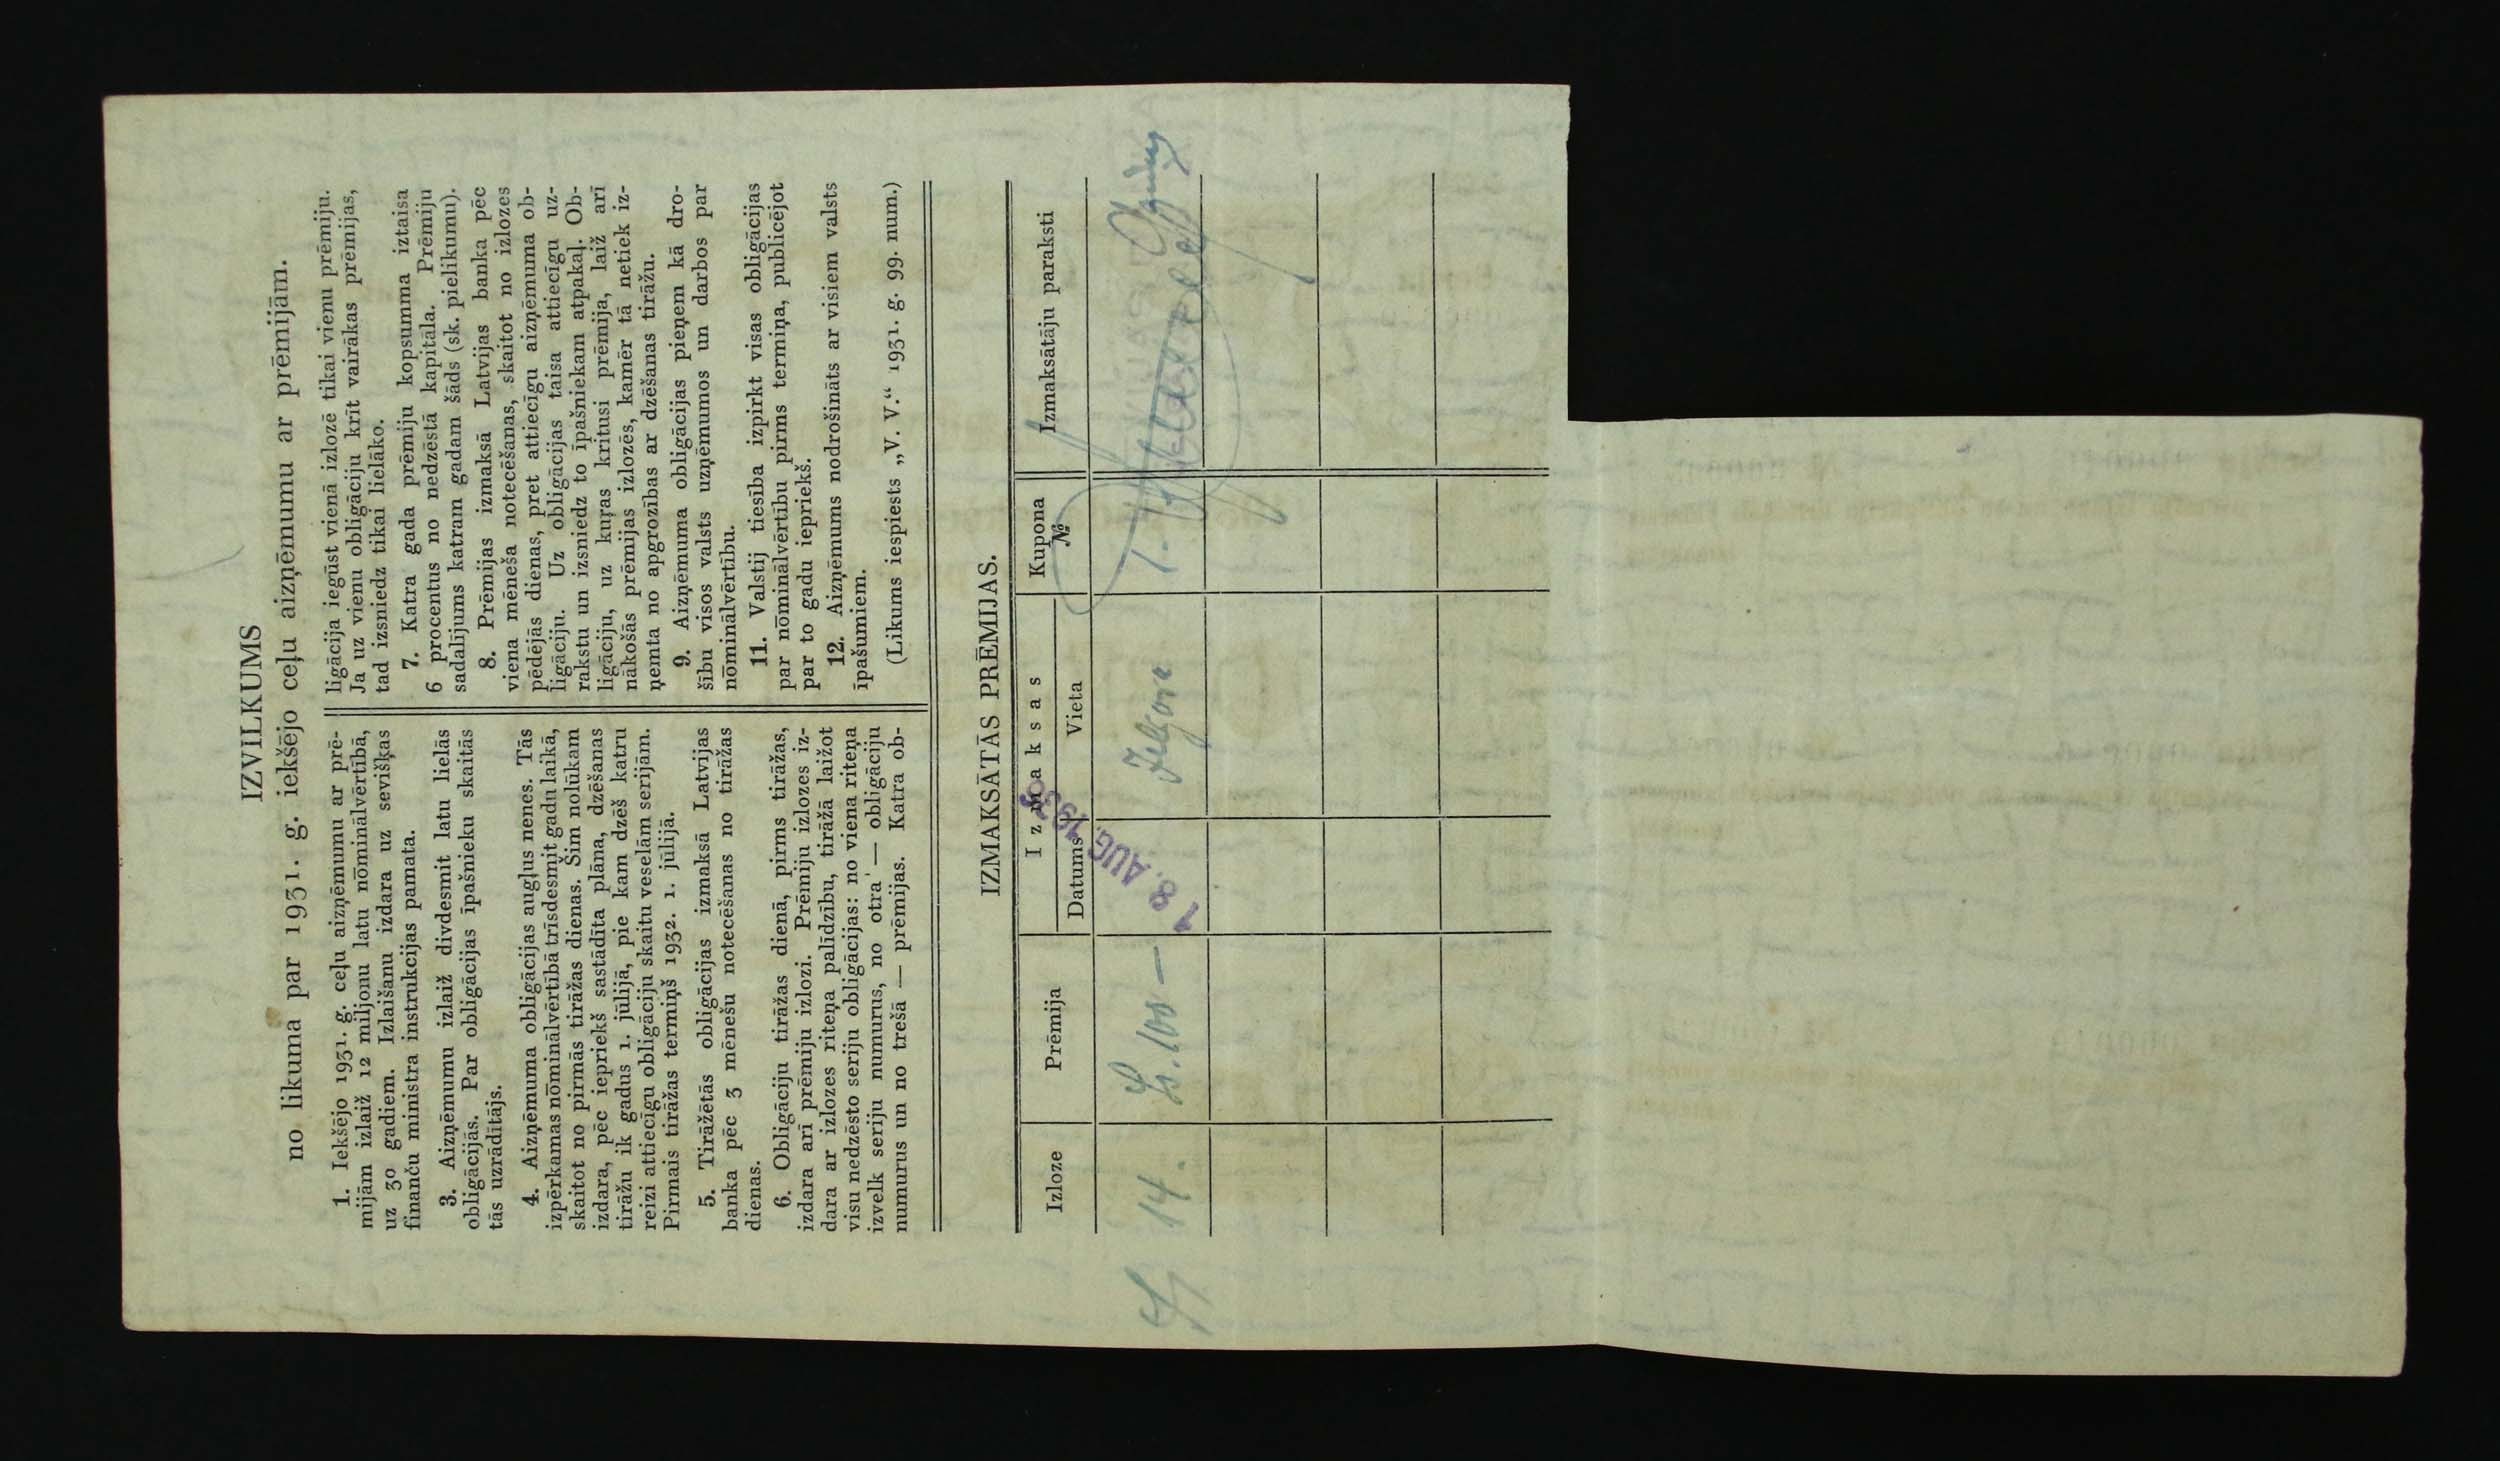 IZVILKUMS
no likuma par 1931. g. iekšējo ceļu aizņēmumu ar prēmijām.
1. Iekšējo 1931. g. ceļu aizņēmumu ar prē-
mijām izlaiž 12 miljonu latu nōminālvērtībā,
uz 30 gadiem. Izlaišanu izdara uz sevišķas
finanču ministra instrukcijas pamata.
3. Aizņēmumu izlaiž divdesmit latu lielās
obligācijās. Par obligācijas īpašnieku skaitās
tās uzrādītājs.
4. Aizņēmuma obligācijas augļus nenes. Tās
izpērkamas nōminālvērtībā trīsdesmit gadu laikā,
skaitot no pirmās tirāžas dienas. Šim nolūkam
izdara, pēc iepriekš sastādīta plāna, dzēšanas
tirāžu ik gadus 1. jūlijā, pie kam dzēš katru
reizi attiecīgu obligāciju skaitu veselām serijām.
Pirmais tirāžas termiņš 1932. 1. jūlijā.
5. Tirāžētās obligācijas izmaksā Latvijas
banka pēc 3 mēnešu notecēšanas no tirāžas
dienas.
6. Obligāciju tirāžas dienā, pirms tirāžas,
izdara arī prēmiju izlozi. Prēmiju izlozes iz-
dara ar izlozes riteņa palīdzību, tirāžā laižot
visu nedzēsto seriju obligācijas: no viena riteņa
izvelk seriju numurus, no otra — obligāciju
numurus un no trešā — prēmijas. Katra ob-
ligācija iegūst vienā izlozē tikai vienu prēmiju.
Ja uz vienu obligāciju krīt vairākas prēmijas,
tad izsniedz tikai lielāko.
7. Katra gada prēmiju kopsumma iztaisa
6 procentus no nedzēstā kapitāla. Prēmiju
sadalījums katram gadam šāds (sk. pielikumu).
8. Prēmijas izmaksā Latvijas banka pēc
viena mēneša notecēšanas, skaitot no izlozes
pēdējās dienas, pret attiecīgu aizņēmuma ob-
ligāciju. Uz obligācijas taisa attiecīgu uz-
rakstu un izsniedz to īpašniekam atpakaļ. Ob-
ligāciju, uz kuŗas kritusi prēmija, laiž arī
nākošās prēmijas izlozēs, kamēr tā netiek iz-
ņemta no apgrozības ar dzēšanas tirāžu.
9. Aizņēmuma obligācijas pieņem kā dro-
šību visos valsts uzņēmumos un darbos par
nōminālvērtību.
11. Valstij tiesība izpirkt visas obligācijas
par nōminālvērtību pirms termiņa, publicējot
par to gadu iepriekš.
12. Aizņēmums nodrošināts ar visiem valsts
īpašumiem.
(Likums iespiests „V. V.“ 1931. g. 99. num.)
IZMAKSĀTĀS PRĒMIJAS.
Izloze Prēmija Izmaksas Kupona № Izmaksātāju paraksti
Datums Vieta
14. Ls. 100 — 18. AUG. 1938 Jelgava